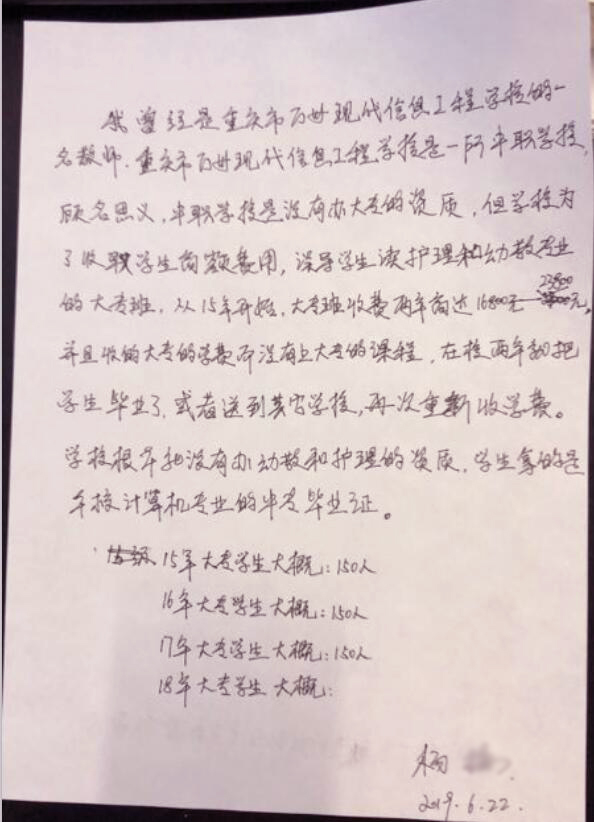 我曾经是重庆市万世现代信息工程学校的一
名教师．重庆市万世现代信息工程学校是一所中职学校，
顾名思义，中职学校是没有办大专的资质，但学校为
了收取学生高额费用，误导学生读护理和幼教专业
的大专班，从15年开始，大专班收费两年高达16800元—23800元。
并且收的大专的学费而没有上大专的课程，在校两年就把
学生毕业了，或者送到其它学校，再次重新收学费。
学校根本就没有办幼教和护理的资质，学生拿的是
本校计算机专业的中专毕业证。
15年大专学生大概：150人
16年大专学生大概：150人
17年大专学生大概：150人
18年大专学生大概：
杨
2019.6.22.